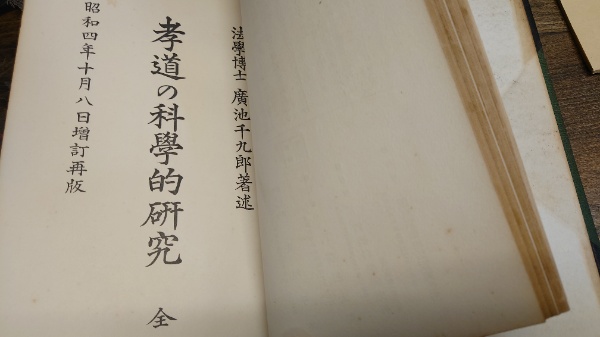 法學博士 廣池千九郎著述
孝道の科學的研究 全
昭和四年十月八日增訂再版